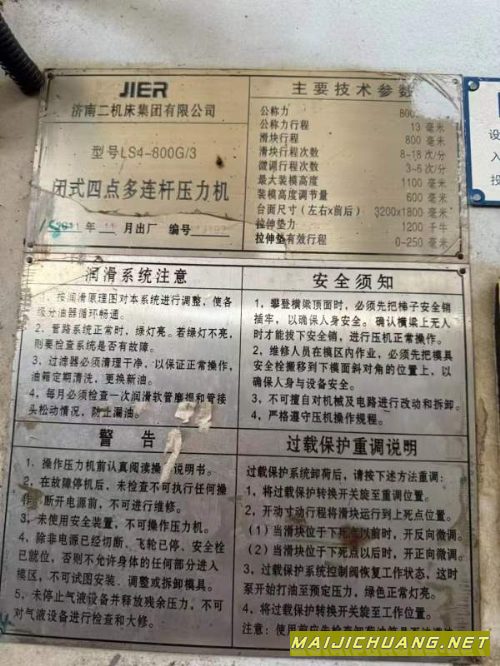 JIER
济南二机床集团有限公司
型号LS4-800G/3
闭式四点多连杆压力机
年 月出厂 编号
主要技术参数
公称力 800
公称力行程 13 毫米
滑块行程 800 毫米
滑块行程次数 8-18 次/分
微调行程次数 3-6 次/分
最大装模高度 1100 毫米
装模高度调节量 600 毫米
台面尺寸（左右x前后） 3200x1800 毫米
拉伸垫力 1200 千牛
拉伸垫有效行程 0-250 毫米
设
入
投
润滑系统注意
1、按润滑原理图对本系统进行调整，使各
级分油器循环畅通。
2、管路系统正常时，绿灯亮。若绿灯不亮，
则要检查系统是否有故障。
3、过滤器必须清理干净，以保证正常操作，
油箱定期清洗，更换新油。
4、每月必须检查一次润滑软管磨损和管接
头松动情况，防止漏油。
安全须知
1、攀登横梁顶面时，必须先把梯子安全销
插牢，以确保人身安全。确认横梁上无人
时才能拔下安全销，进行压机正常操作。
2、维修人员在模区内作业，必须先把模具
安全栓搬移到下模面斜对角的位置上，以
确保人身与设备安全。
3、不可擅自对机械及电路进行改动和拆卸。
4、严格遵守压机操作规程。
警告
1、操作压力机前认真阅读操 说明书。
2、在故障停机后，未检查不可执行任何操
断开电源前，不可进行维修。
3、未使用安全装置，不可操作压力机。
4、除非电源已经切断、飞轮已停、安全栓
已就位，否则不允许身体的任何部分进入
模区，不可试图安装、调整或拆卸模具。
5、未停止气液设备并释放残余压力，不可
对气液设备进行检查和大修。
过载保护重调说明
过载保护系统卸荷后，请按下述方法重调：
1、将过载保护转换开关旋至重调位置。
2、开动寸动行程将滑块运行到上死点位置。
（1）当滑块位于下死点以前时，开反向微调。
（2）当滑块位于下死点以后时，开正向微调。
3、过载保护系统控制阀恢复工作状态，这时
泵开始打油至预定压力，绿色正常灯亮。
4、将过载保护转换开关旋至工作位置。
注意：使用前应先检查
MAIJICHUANG.NET